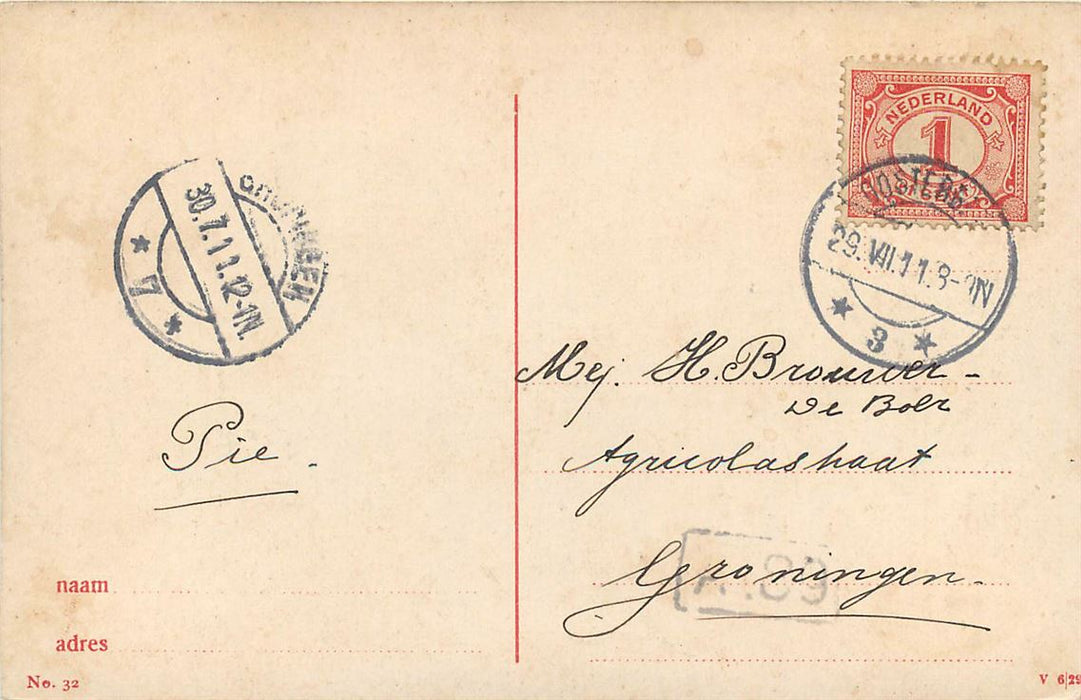 NEDERLAND
1
29.VII.11.8-9N
3
GRONINGEN
30.7.11.12-1N.
7
Mej. H. Brouwer-
De Boer
Agricolastraat
Groningen.
Pie.
naam
adres
No. 32
V 6|29